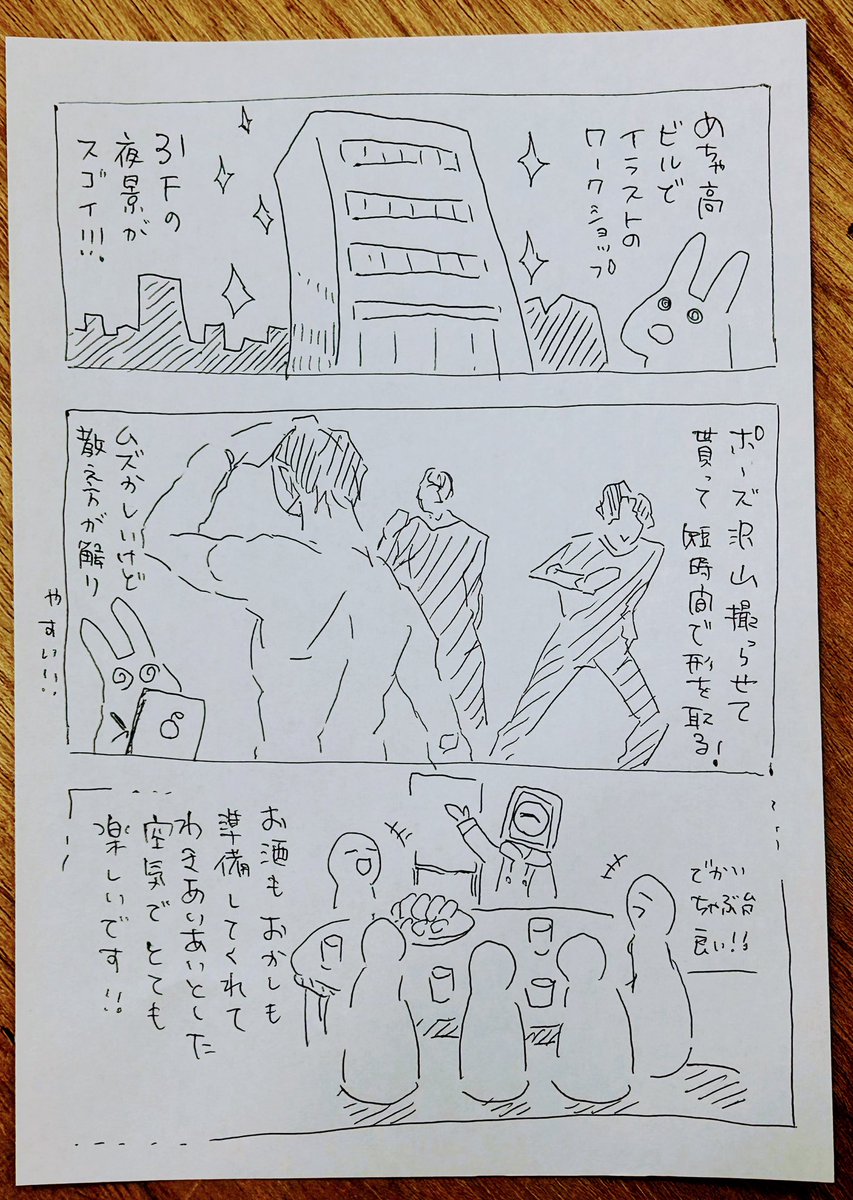 めちゃ高
ビルで
イラストの
ワークショップ
31Fの
夜景が
スゴイ!!!
ポーズ沢山撮らせて
貰って短時間で形を取る!
ムズかしいけど
教え方が解り
やすい!!
でかい
ちゃぶ台
良い!!
お酒もおかしも
準備してくれて
わきあいあいとした
空気でとても
楽しいです!!